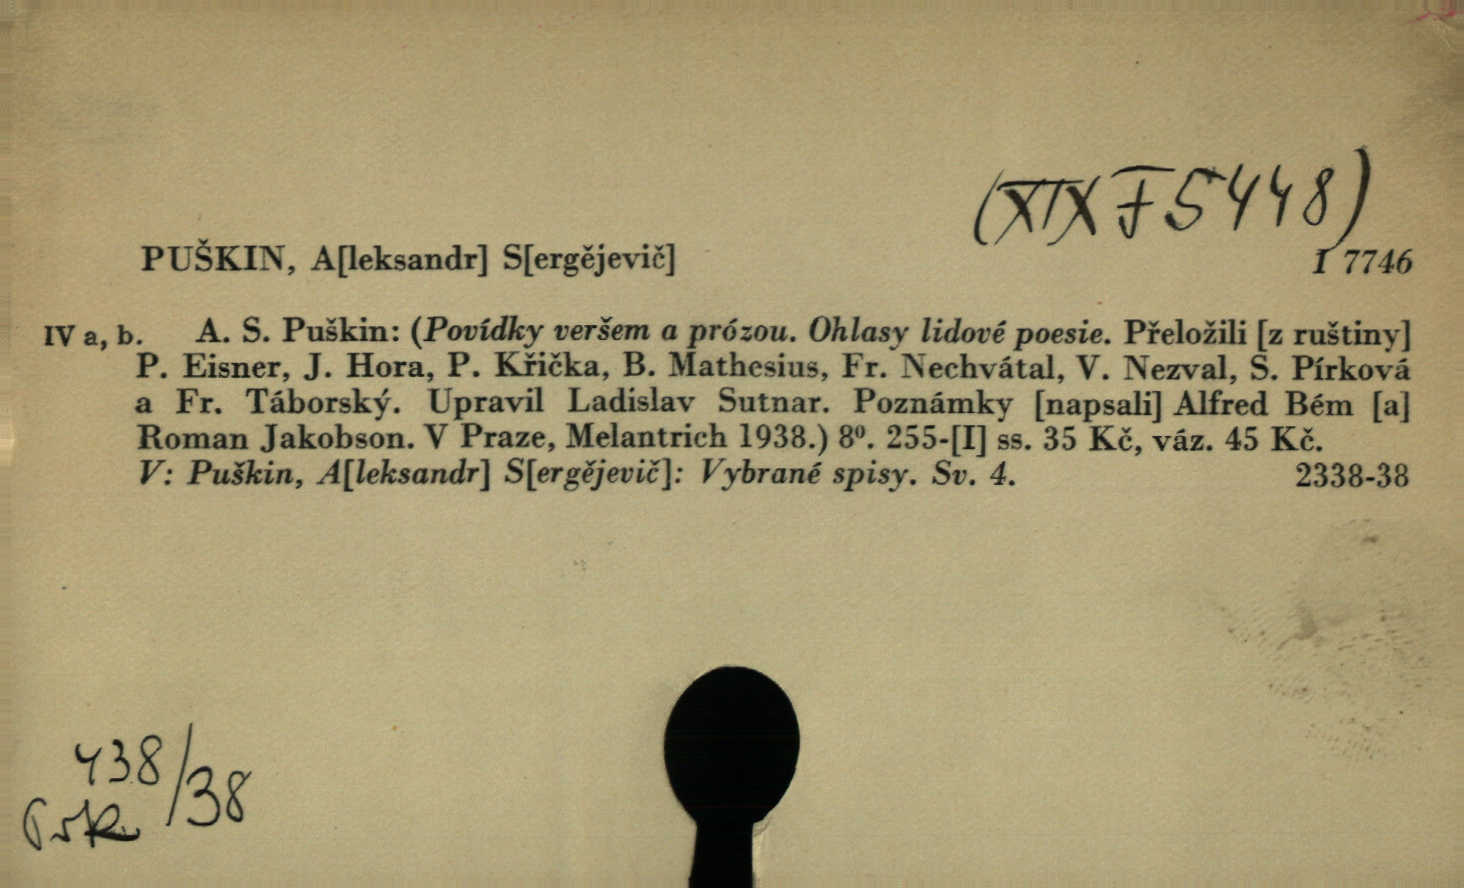 (XIX F 5448)
PUŠKIN, A[leksandr] S[ergějevič]
I 7746
IV a, b. A. S. Puškin: (Povídky veršem a prózou. Ohlasy lidové poesie. Přeložili [z ruštiny]
P. Eisner, J. Hora, P. Křička, B. Mathesius, Fr. Nechvátal, V. Nezval, S. Pírková
a Fr. Táborský. Upravil Ladislav Sutnar. Poznámky [napsali] Alfred Bém [a]
Roman Jakobson. V Praze, Melantrich 1938.) 8⁰. 255-[I] ss. 35 Kč, váz. 45 Kč.
V: Puškin, A[leksandr] S[ergějevič]: Vybrané spisy. Sv. 4. 2338-38
438/38